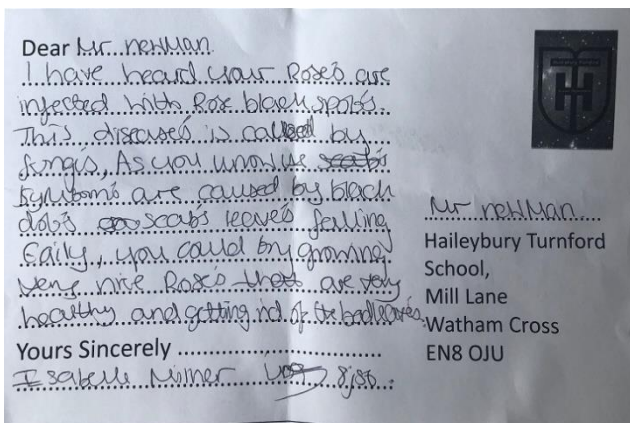 Dear Mr newman
I have heard your Rose's are
injected with Rose black spots.
This disease's is caused by
fungis, As you know the
symtom's are caused by black
dob's scab's leave's falling
Eaily, you could try growing
very nice Rose's that are very
healthy and getting rid of the bad leaves.
Yours Sincerely
Isabelle Milner
Mr newman
Haileybury Turnford
School,
Mill Lane
Watham Cross
EN8 OJU